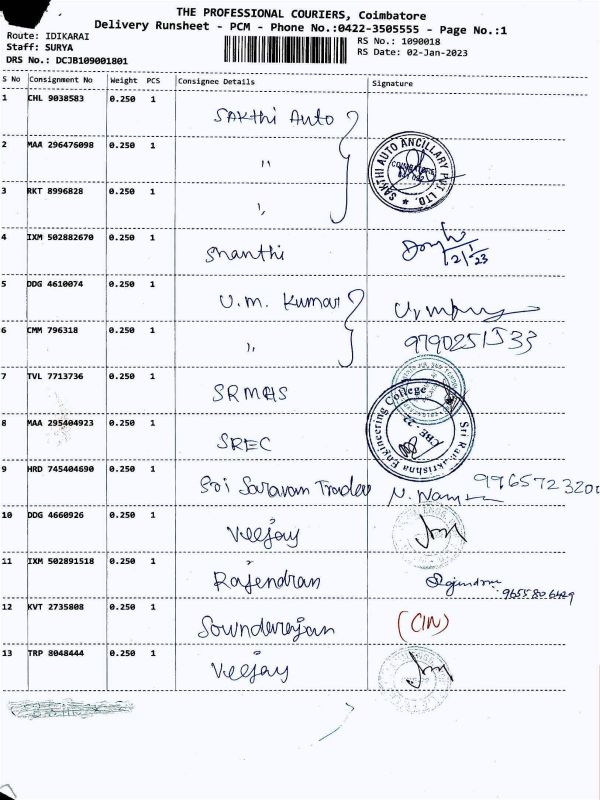 THE PROFESSIONAL COURIERS, Coimbatore
Delivery Runsheet - PCM - Phone No.:0422-3505555 - Page No.:1
Route: IDIKARAI
RS No.: 1090018
Staff: SURYA
RS Date: 02-Jan-2023
DRS No.: DCJB109001801
S No Consignment No Weight PCS Consignee Details Signature
1 CHL 9038583 0.250 1 Sakthi Auto
2 MAA 296476098 0.250 1 "
SAKTHI AUTO ANCILLARY PVT. LTD.
COIMBATORE
3 RKT 8996828 0.250 1 "
4 IXM 502882670 0.250 1 Shanthi
2/1/23
5 DDG 4610074 0.250 1 U.m. Kumar
6 CMM 796318 0.250 1 " 9790251533
7 TVL 7713736 0.250 1 SRMHS
8 MAA 295404923 0.250 1 SREC
Sri Ramakrishna Engineering College
CBE-22
9 HRD 745404690 0.250 1 Sri Saravana Traders 9965723200
10 DDG 4660926 0.250 1 Veejay
11 IXM 502891518 0.250 1 Rajendran Rajendran
9655806429
12 KVT 2735808 0.250 1 Sounderajan (CIN)
13 TRP 8048444 0.250 1 Veejay